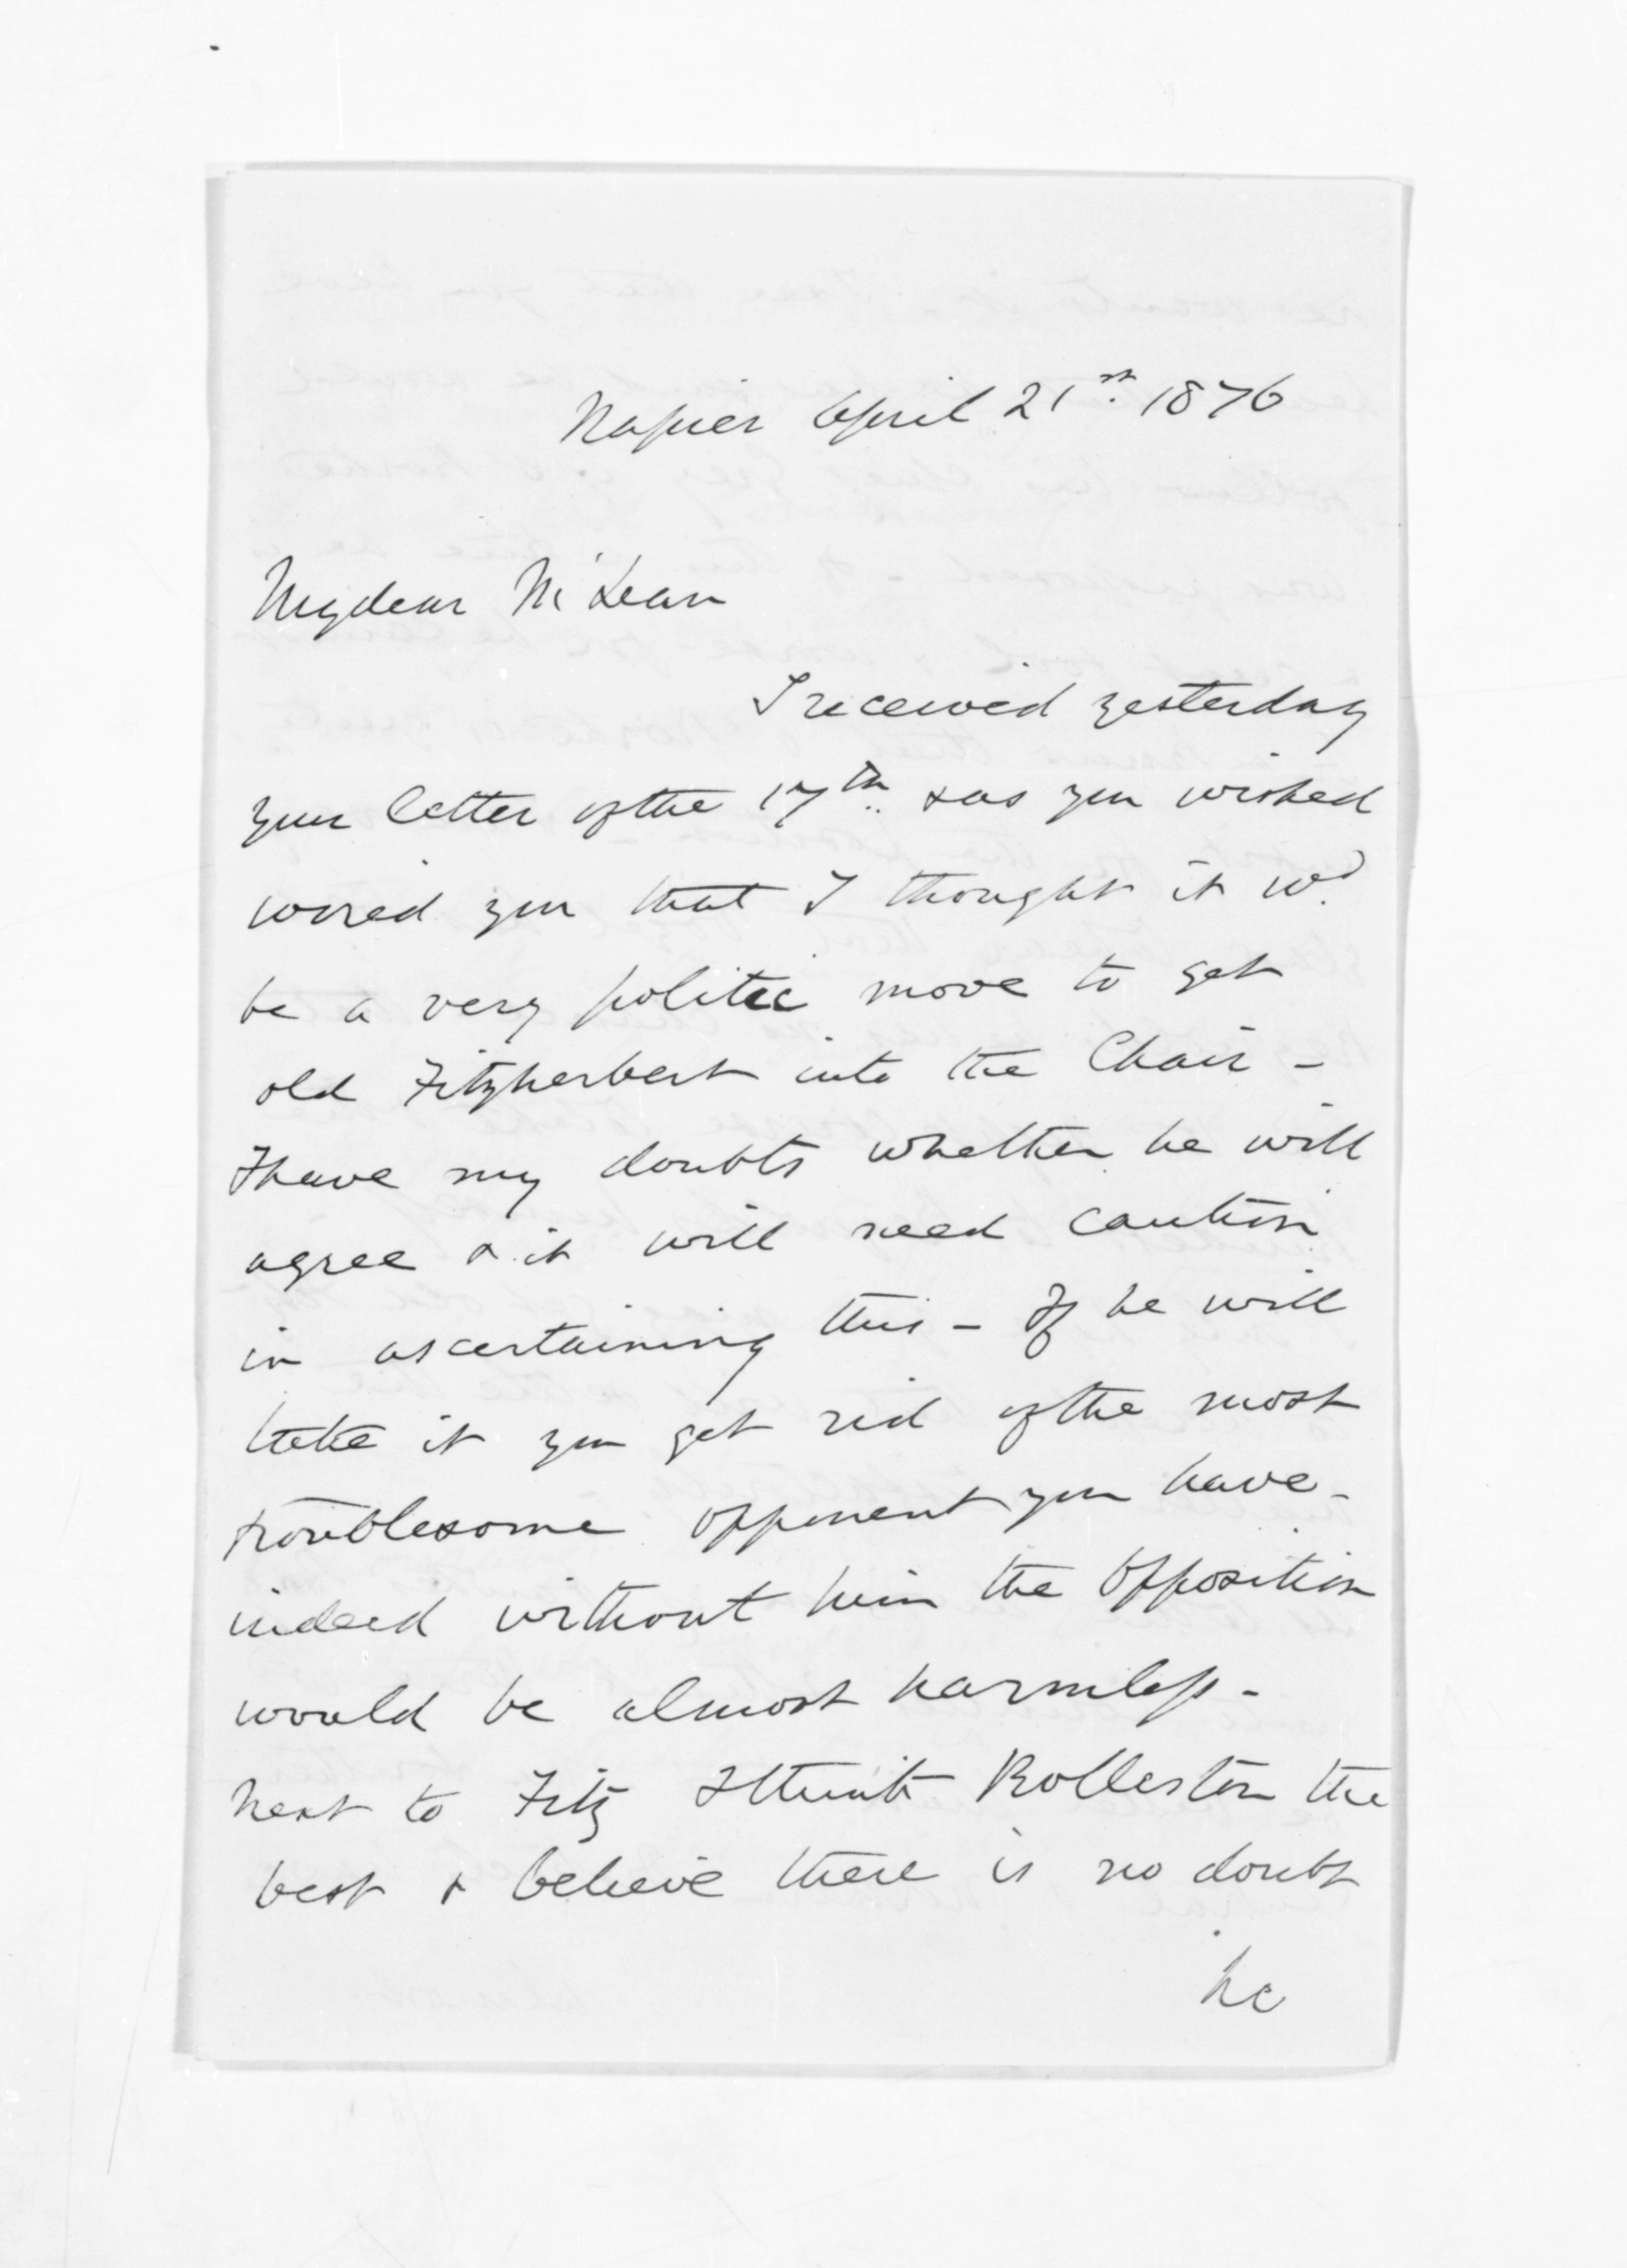 Napier April 21st. 1876
My dear McLean
I received yesterday
your letter of the 17th. & as you wished
wired you that I thought it wd.
be a very politic move to get
old Fitzherbert into the Chair -
I have my doubts whether he will
agree & it will need caution
in ascertaining this - If he will
take it you get rid of the most
troublesome opponent you have -
indeed without him the Opposition
would be almost harmless -
Next to Fitz I think Rolleston the
best & believe there is no doubt
he